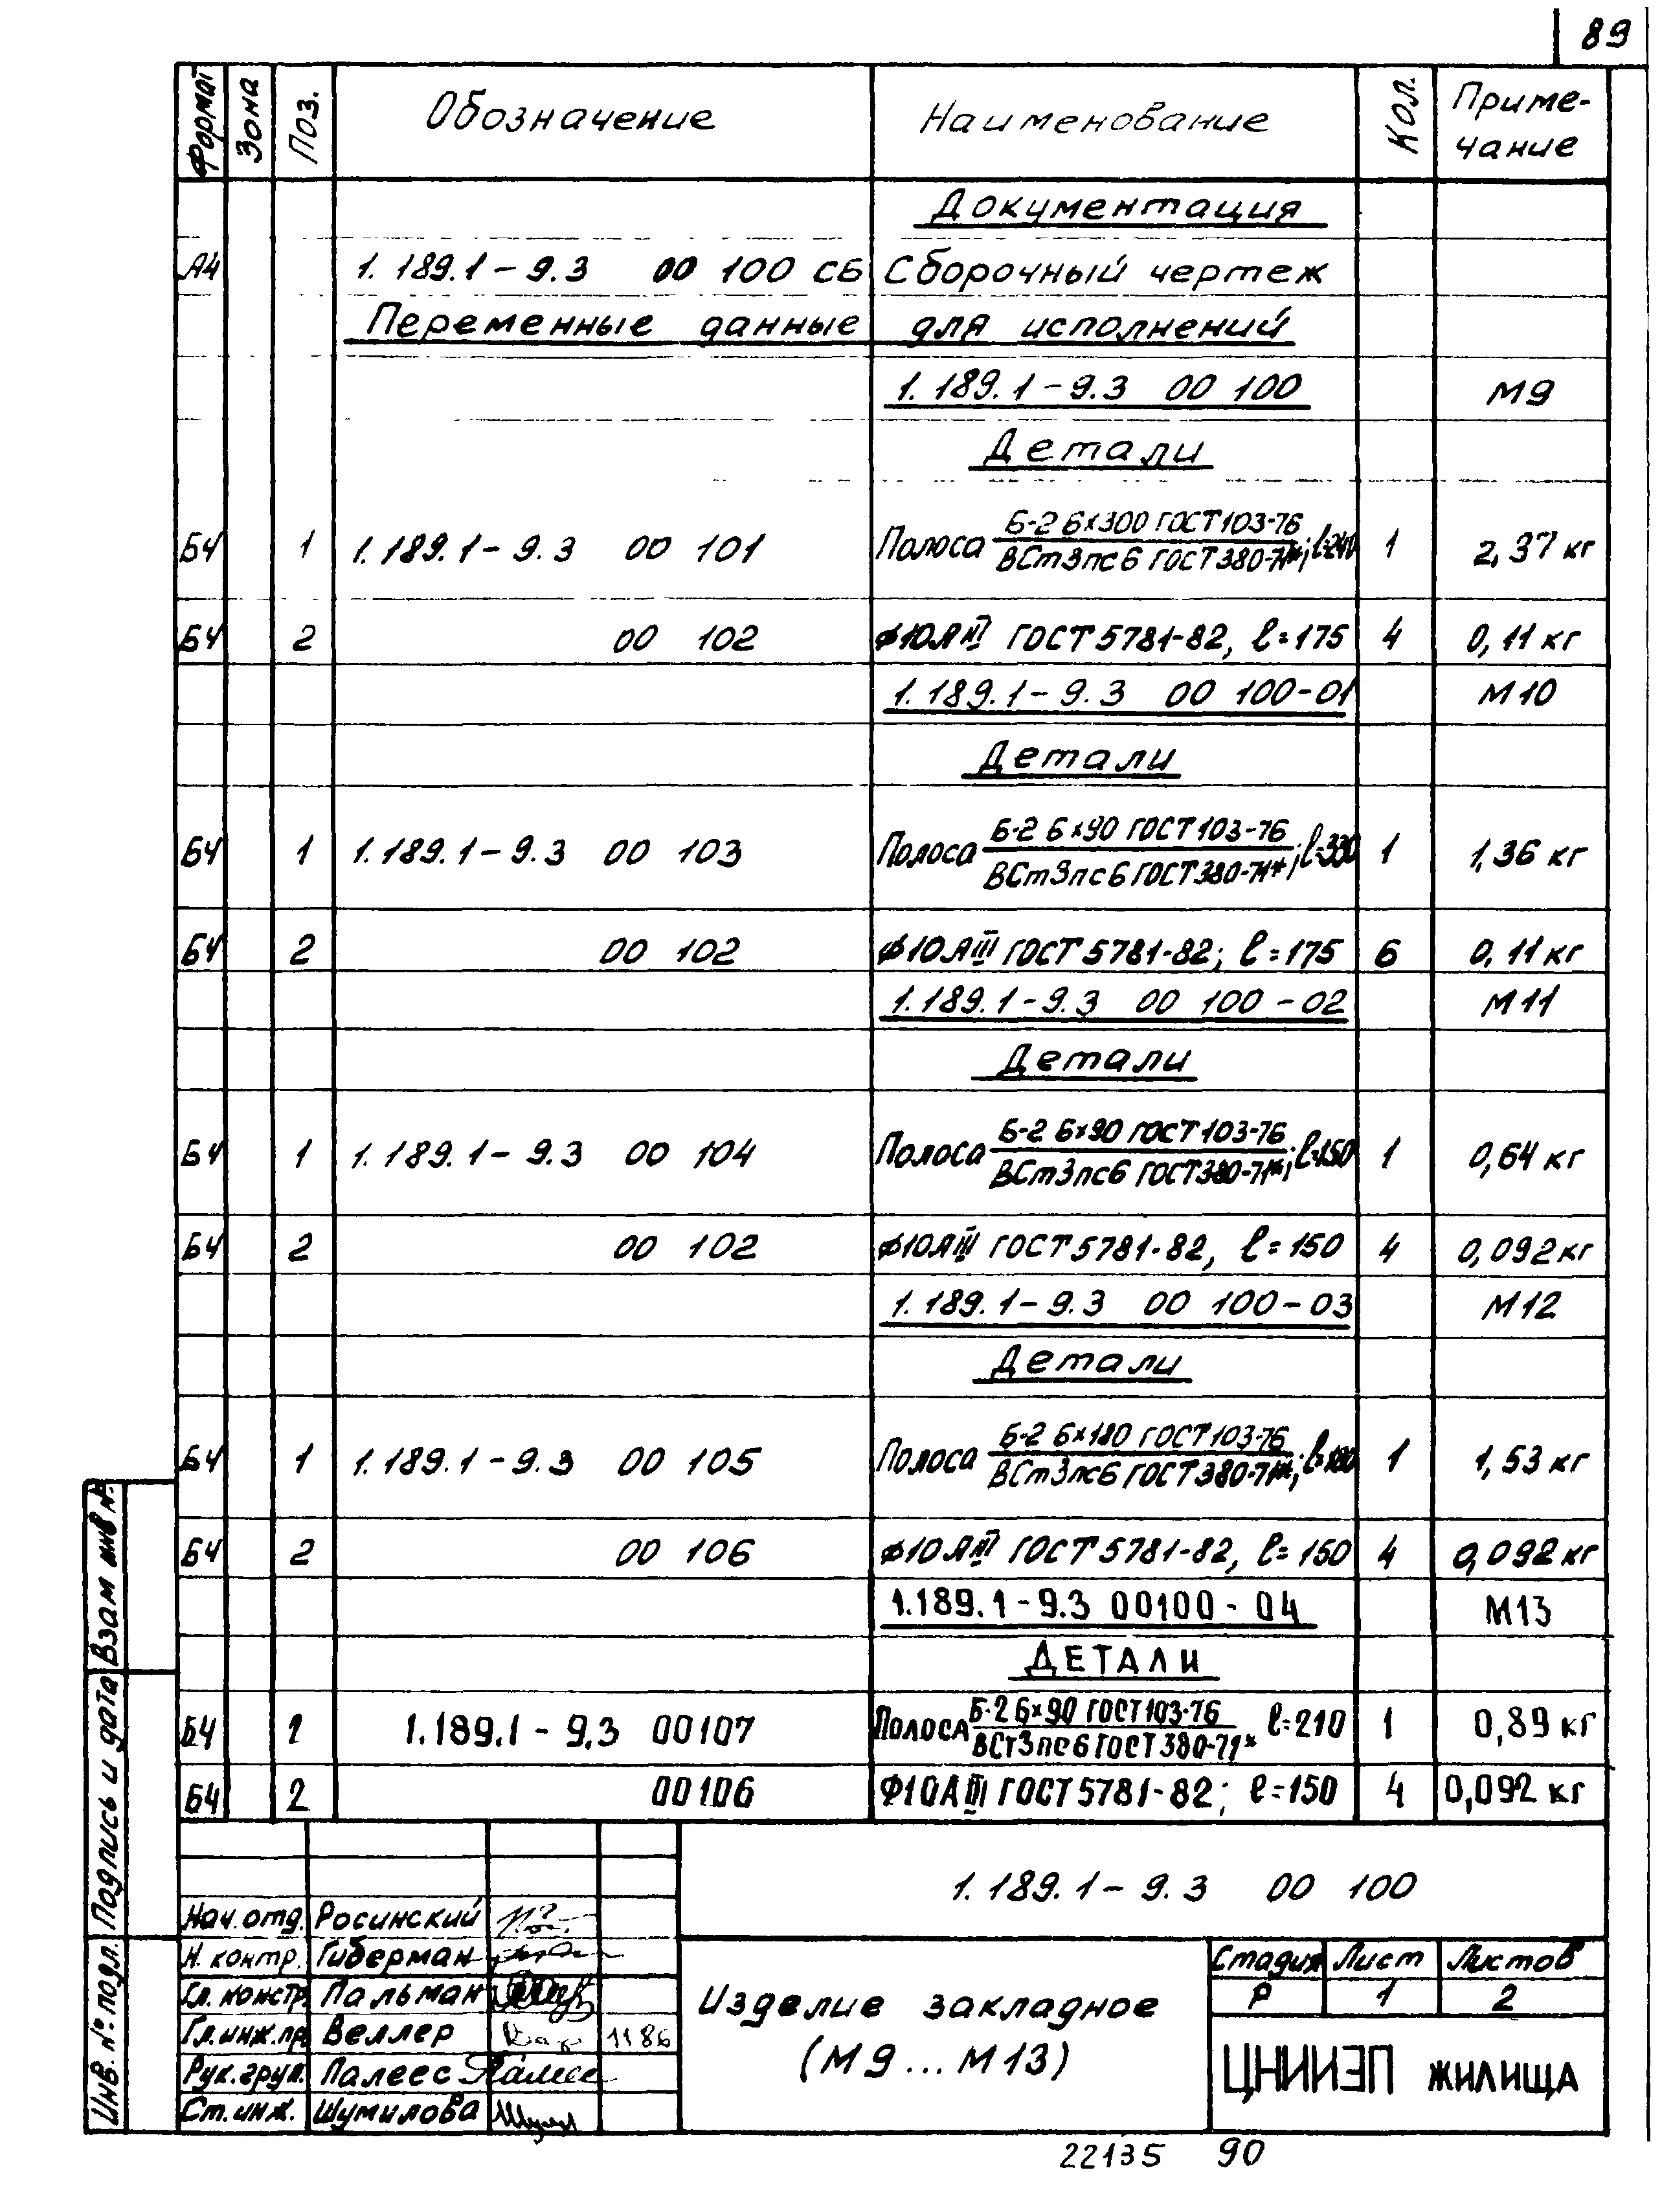 89
Формат Зона Поз. Обозначение Наименование Кол. Приме-
чание
Документация
А4 1.189.1-9.3 00 100 СБ Сборочный чертеж
Переменные данные для исполнений
1.189.1-9.3 00 100 М9
Детали
Б4 1 1.189.1-9.3 00 101 Полоса Б-2 6х300 ГОСТ 103-76 / ВСт3пс6 ГОСТ 380-71*; ℓ=240 1 2,37 кг
Б4 2 00 102 ϕ10АIII ГОСТ 5781-82, ℓ=175 4 0,11 кг
1.189.1-9.3 00 100-01 М10
Детали
Б4 1 1.189.1-9.3 00 103 Полоса Б-2 6х90 ГОСТ 103-76 / ВСт3пс6 ГОСТ 380-71*; ℓ=330 1 1,36 кг
Б4 2 00 102 ϕ10АIII ГОСТ 5781-82; ℓ=175 6 0,11 кг
1.189.1-9.3 00 100-02 М11
Детали
Б4 1 1.189.1-9.3 00 104 Полоса Б-2 6х90 ГОСТ 103-76 / ВСт3пс6 ГОСТ 380-71*; ℓ=150 1 0,64 кг
Б4 2 00 102 ϕ10АIII ГОСТ 5781-82, ℓ=150 4 0,092 кг
1.189.1-9.3 00 100-03 М12
Детали
Б4 1 1.189.1-9.3 00 105 Полоса Б-2 6х180 ГОСТ 103-76 / ВСт3пс6 ГОСТ 380-71*; ℓ=180 1 1,53 кг
Б4 2 00 106 ϕ10АIII ГОСТ 5781-82, ℓ=150 4 0,092 кг
1.189.1-9.3 00100-04 М13
ДЕТАЛИ
Б4 1 1.189.1-9.3 00107 Полоса Б-2 6х90 ГОСТ 103-76 / ВСт3пс6 ГОСТ 380-71* ℓ=210 1 0,89 кг
Б4 2 00106 Ф10АIII ГОСТ 5781-82; ℓ=150 4 0,092 кг
Взам инв №
Подпись и дата
Инв. № подл.
1.189.1-9.3 00 100
Нач. отд. Росинский
Н. контр. Гиберман
Гл. констр. Пальман
Гл. инж. пр. Веллер 11 86
Рук. груп. Палеес
Ст. инж. Шумилова
Изделие закладное
(М9...М13)
Стадия Лист Листов
Р 1 2
ЦНИИЭП жилища
22135 90